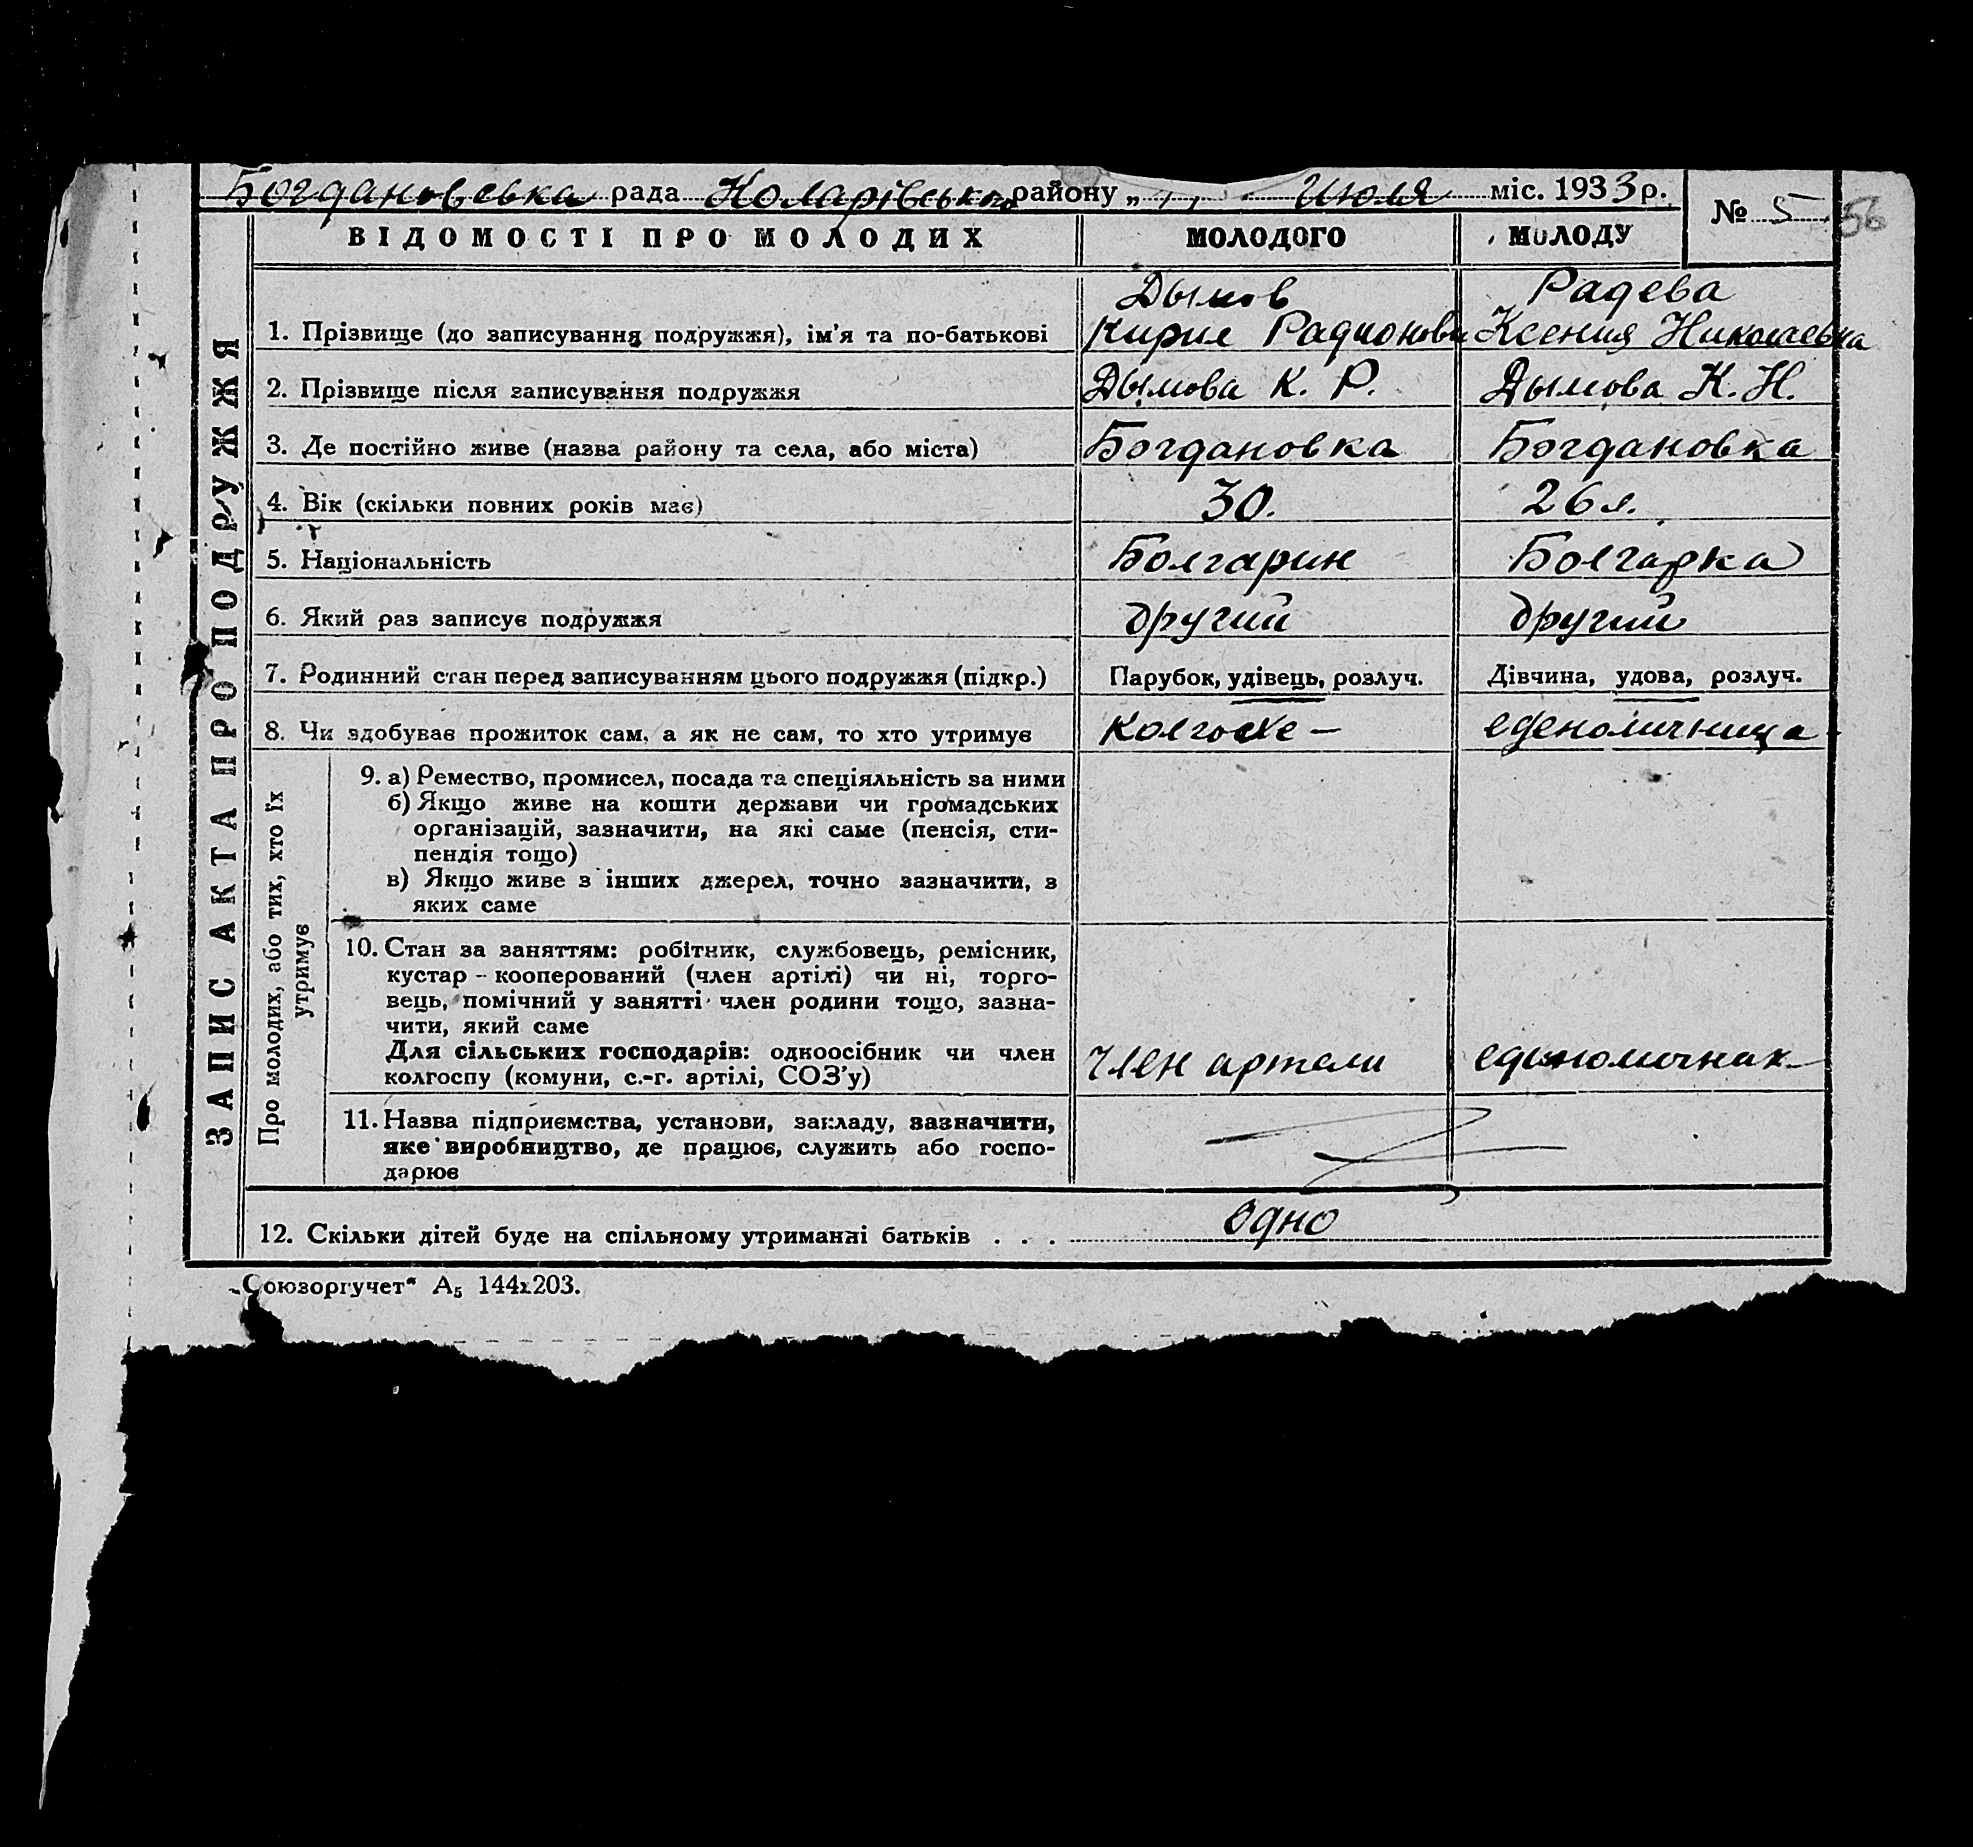 Богдановська рада Коларівського району „ " Июля міс. 1933 р.
№ 5
56
ЗАПИС АКТА ПРО ПОДРУЖЖЯ
ВІДОМОСТІ ПРО МОЛОДИХ МОЛОДОГО МОЛОДУ
Дымов Радева
1. Прізвище (до записування подружжя), ім'я та по-батькові Кирил Радионови Ксения Николаевна
2. Прізвище після записування подружжя Дымова К. Р. Дымова К. Н.
3. Де постійно живе (назва району та села, або міста) Богдановка Богдановка
4. Вік (скільки повних років має) 30. 26 л.
5. Національність Болгарин Болгарка
6. Який раз записує подружжя другий другий
7. Родинний стан перед записуванням цього подружжя (підкр.) Парубок, удівець, розлуч. Дівчина, удова, розлуч.
8. Чи здобував прожиток сам, а як не сам, то хто утримує еденоличница
Про молодих, або тих, хто їх
утримує
9. а) Ремество, промисел, посада та спеціяльність за ними
б) Якщо живе на кошти держави чи громадських
організацій, зазначити, на які саме (пенсія, сти-
пендія тощо)
в) Якщо живе з інших джерел, точно зазначити, з
яких саме
10. Стан за заняттям: робітник, службовець, ремісник,
кустар - кооперований (член артілі) чи ні, торго-
вець, помічний у занятті член родини тощо, зазна-
чити, який саме
Для сільських господарів: одноосібник чи член
колгоспу (комуни, с.-г. артілі, СОЗ'у) член артели единоличник
11. Назва підприємства, установи, закладу, зазначити,
яке виробництво, де працює, служить або госпо-
дарює
12. Скільки дітей буде на спільному утриманні батьків . . . одно
„Союзоргучет" А₅ 144х203.